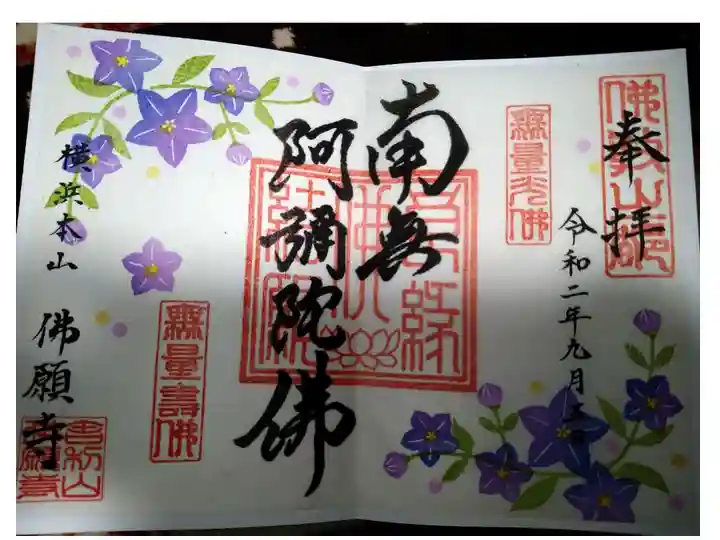 奉拝
令和二年九月
無量光佛
南無
阿彌陀佛
無量壽佛
横浜本山
佛願寺